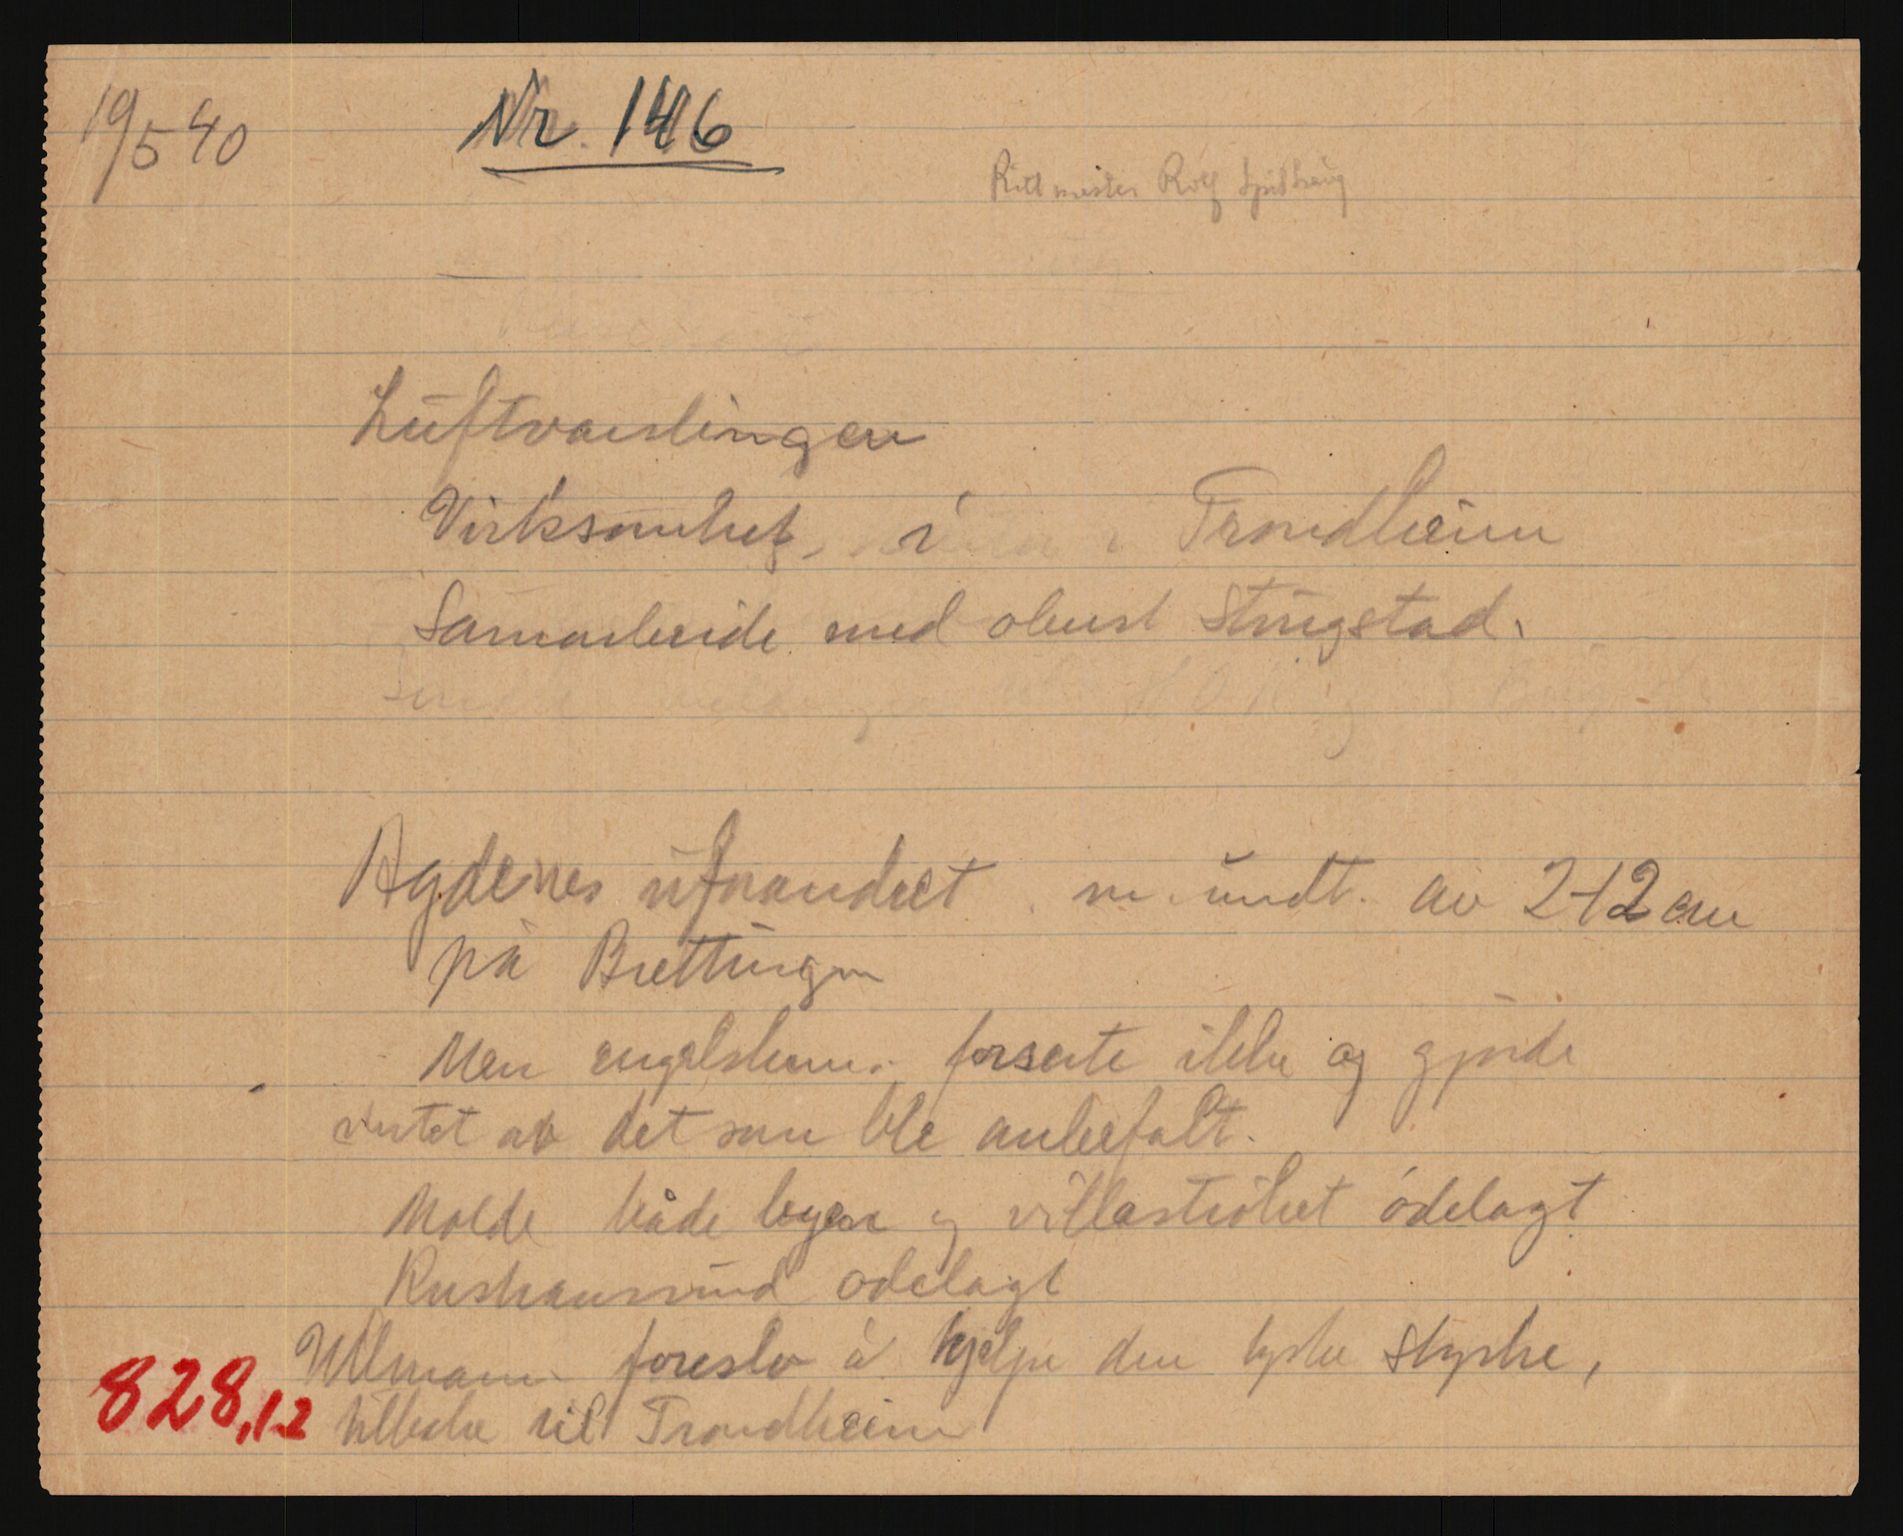 19/5 40
Nr. 146
Rittmester Rolf
Luftvarslingen
Virksomhet, i Trondheim
Samarbeide med oberst Stngstad.
Agdenes uforandret m. undt. av 2-12 cm
på Brettingen
Men engelskmenn. forserte ikke og gjorde
intet av det som ble anbefalt.
Molde både byen og villastrøket ödelagt
Kristiansund odelagt
Ullmann foreslo å hjelpe den tyske styrke,
828,12 tilbake til Trondheim